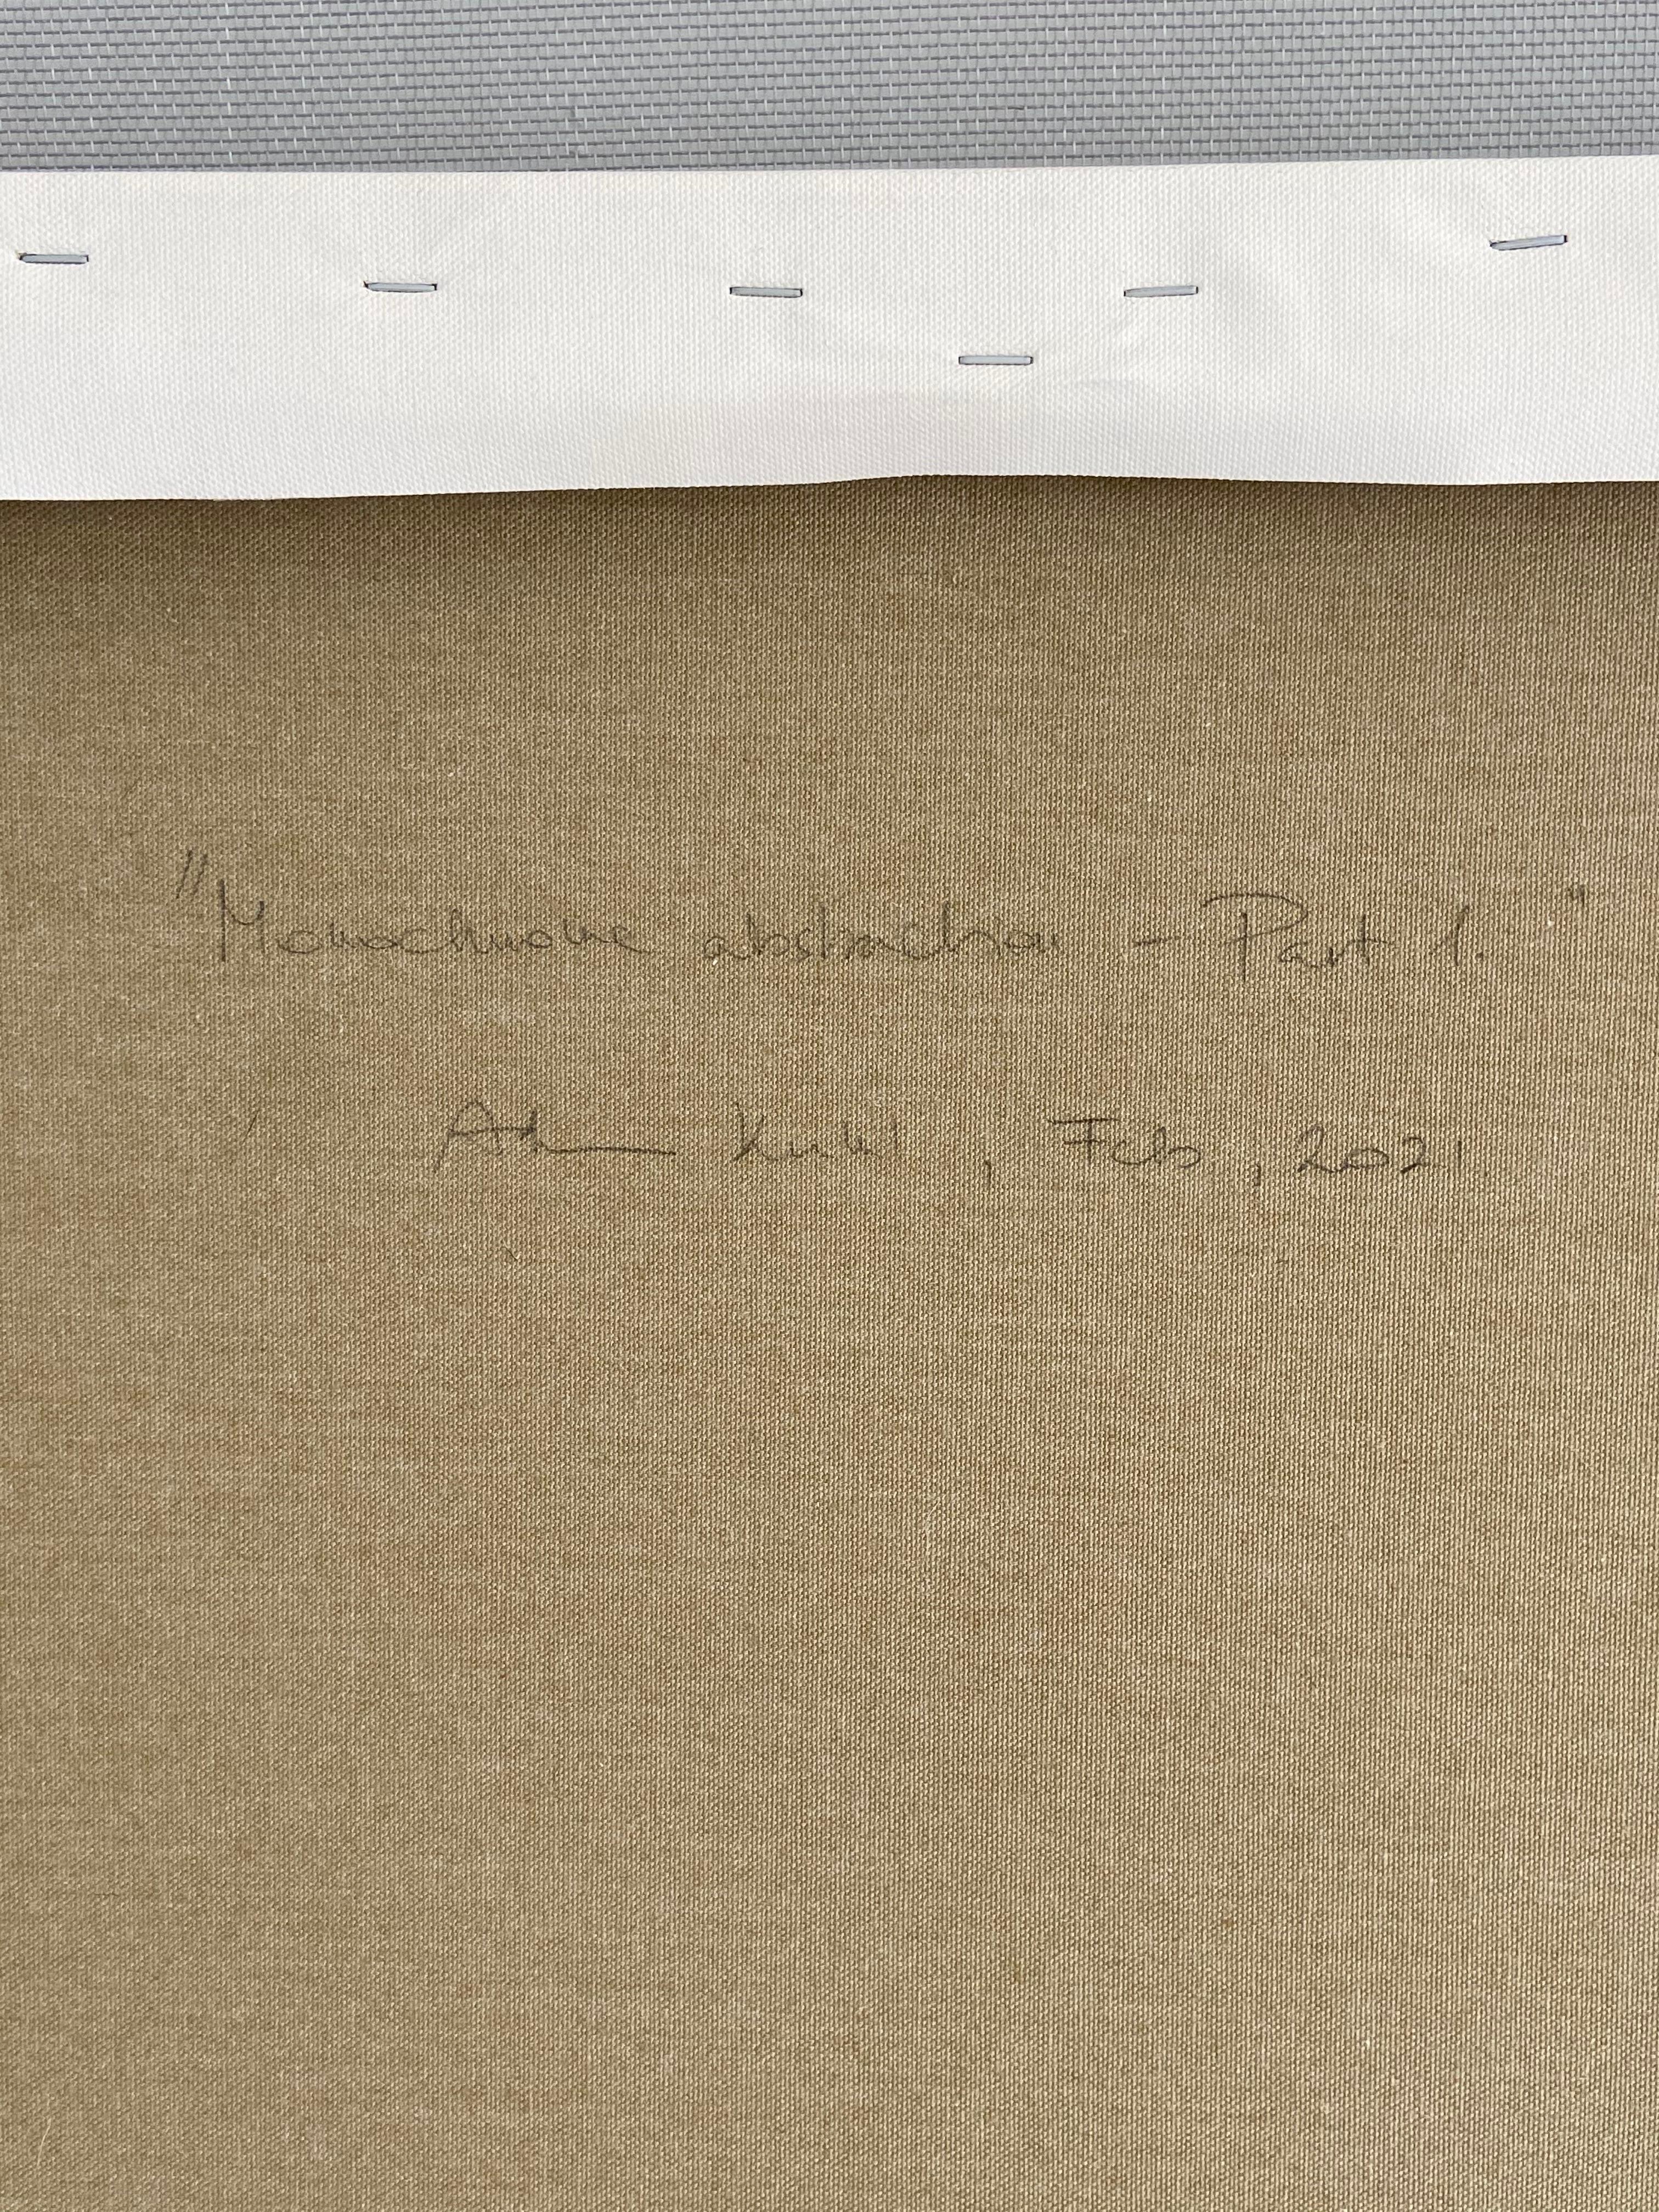 "Monochrome abstraction - Part 1."
Feb, 2021